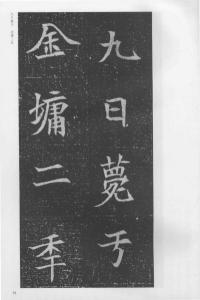 九日薨于
金墉二年